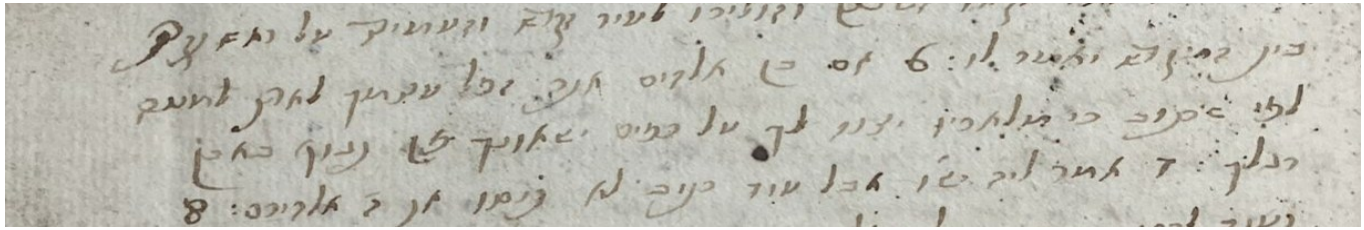 והוליכו לעיר קדש והעמידו על ראש
בית המקדש ויאמר לו: 6 אם בן אלהים אתה הפל עצמך לארץ למטה
לפי שכתוב כי מלאכיו יצוה לך על כפים ישאונך פן תגוף באבן
רגלך: 7 אמר ליה ישו אבל עוד כתוב לא תנסו את ה אלהיכם: 8